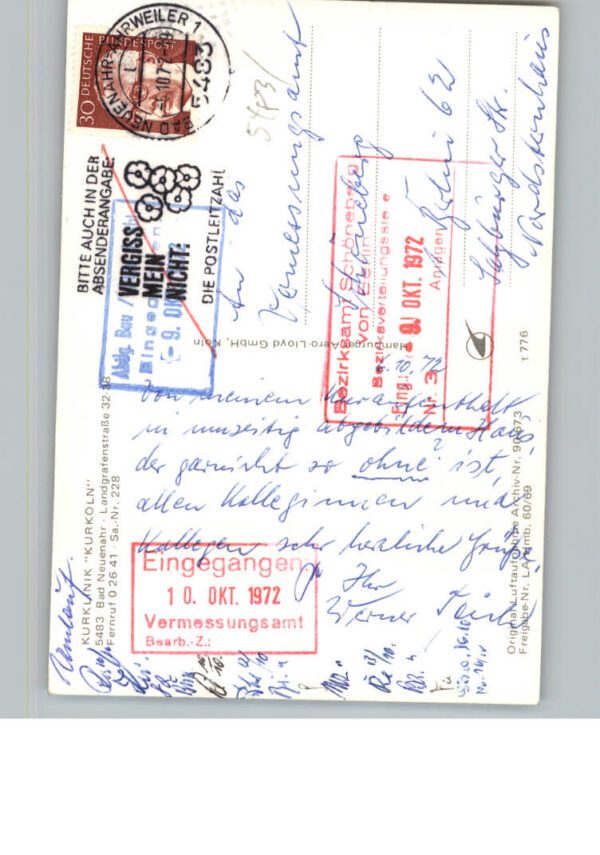 BAD NEUENAHR-AHRWEILER 1
5483
DEUTSCHE BUNDESPOST
30
BITTE AUCH IN DER
ABSENDERANGABE:
VERGISS
MEIN
NICHT:
DIE POSTLEITZAHL
5483
An das
Vermessungsamt
Schöneberg
1 Berlin 62
Salzburger Str.
Nordsternhaus
Bezirksamt Schöneberg
von Berlin
Bezirksverteilungsstelle
Eing.: 9. OKT. 1972
Nr. 3 Anlagen
9. OKT
Hamburger Aero-Lloyd GmbH, Köln
t 776
.10.72
Von meinem Kuraufenthalt
in umseitig abgebildetem Haus,
der garnicht so „ohne" ist,
allen Kolleginnen und
Kollegen sehr herzliche Grüße
Ihr
Werner
KURKLINIK "KURKÖLN"
5483 Bad Neuenahr · Landgrafenstraße 32-38
Fernruf 0 26 41 · Sa.-Nr. 228
Original-Luftaufnahme Archiv-Nr.
Freigabe-Nr. LA Hmb. 60/69
Eingegangen
10. OKT. 1972
Vermessungsamt
Bearb.-Z.:
Umlauf